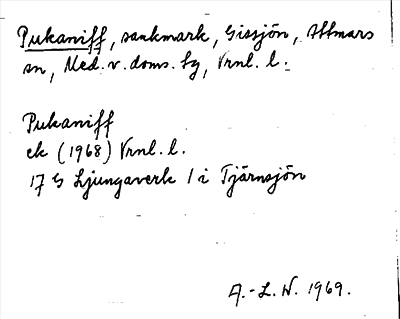 Pukaniff, sankmark, Gissjön, Attmars
sn, Med. v. doms. sg, Vrnl. l.
Pukaniff
ek (1968) Vrnl. l.
17 G Ljungaverk 1 i Tjärnsjön
A.-L. N. 1969.